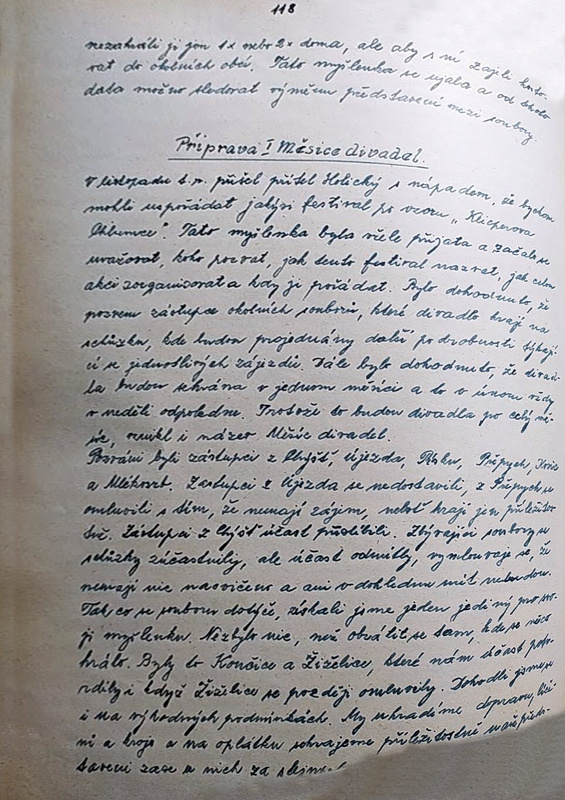 118
nezahráli ji jen 1x nebo 2x doma, ale aby s ní zajeli hosto-
vat do okolních obcí. Tato myšlenka se ujala a od tohoto
data možno sledovat výměnu představení mezi soubory.
Příprava I Měsíce divadel.
V listopadu t.r. přišel přítel Holický s nápadem, že bychom
mohli uspořádat jakýsi festival po vzoru „Klicperova
Chlumce". Tato myšlenka byla vřele přijata a začalo se
uvažovat, koho pozvat, jak tento festival nazvat, jak celou
akci zorganizovat a kdy ji pořádat. Bylo dohodnuto, že
pozveme zástupce okolních souborů, které divadlo hrají na
schůzku, kde budou projednány další podrobnosti týkají-
cí se jednotlivých zájezdů. Dále bylo dohodnuto, že divad-
la budou sehrána v jednom měsíci a to v únoru vždy
v neděli odpoledne. Protože to budou divadla po celý mě-
síc, vznikl i název Měsíc divadel.
Pozváni byli zástupci z Chýšť, Újezda, Rasku, Přepych,
a Mlékosrb. Zástupci z Újezda se nedostavili, z Přepych se
omluvili s tím, že nemají zájem, neboť hrají jen příležitos-
tně. Zástupci z Chýšť účast přislíbili. Zbývající soubory se
schůzky zúčastnily, ale účast odmítly, vymlouvaje se, že
nemají nic nacvičeno a ani v dohlednu mít nebudou.
Tak, co se souboru dotýče, získali jsme jeden jediný pro svo-
ji myšlenku. Nezbylo nic, než obrátit se tam, kde se něco
hrálo. Byly to Končice a Žiželice, které nám účast potv-
rdily i když Žiželice se později omluvily. Dohodli jsme se
i na výhodných podmínkách. My uhradíme dopravu,
ní a kroje a na oplátku sehrajeme příležitostně naše předs-
tavení zase u nich za stejných